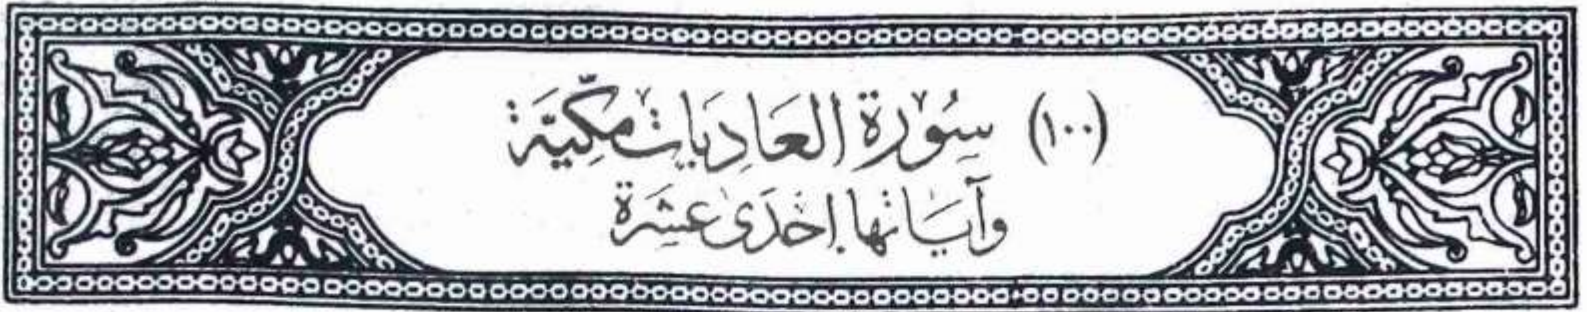 (١٠٠) سُورَة العَادِيَات مَكِّيَّة
وَآيَاتُهَا إِحْدَى عَشرَة